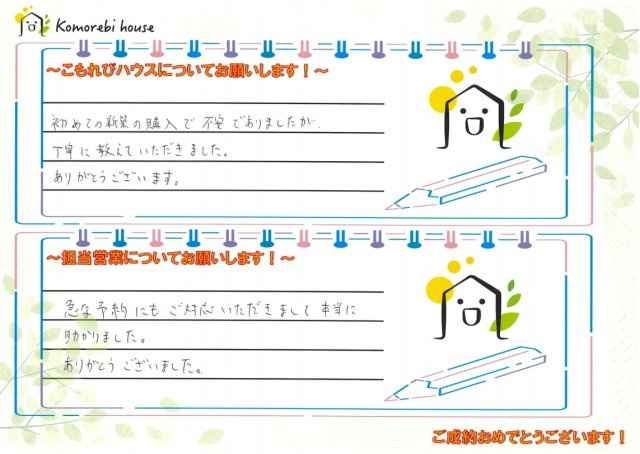 Komorebi house
～こもれびハウスについてお願いします！～
初めての新築の購入で不安でありましたが、
丁寧に教えていただきました。
ありがとうございます。
～担当営業についてお願いします！～
急な予約にもご対応いただきまして本当に
助かりました。
ありがとうございました。
ご成約おめでとうございます！